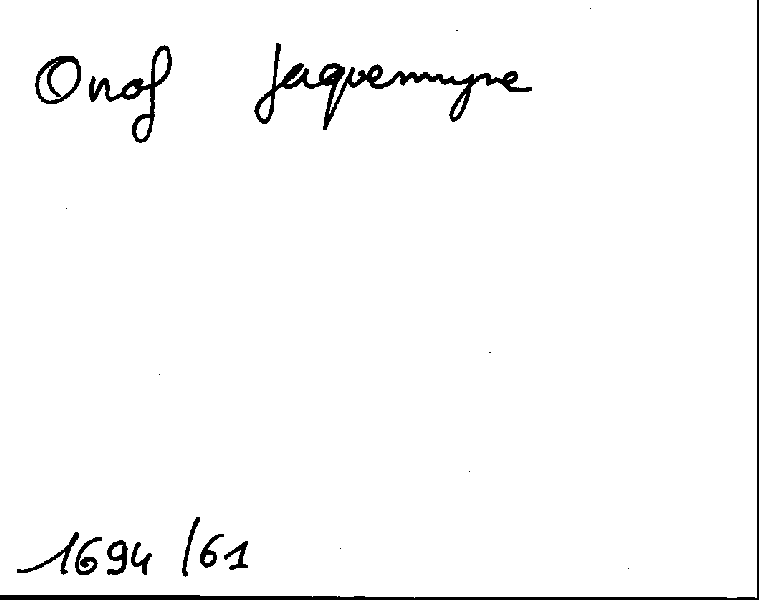 Onof Jaquemyne
1694/61